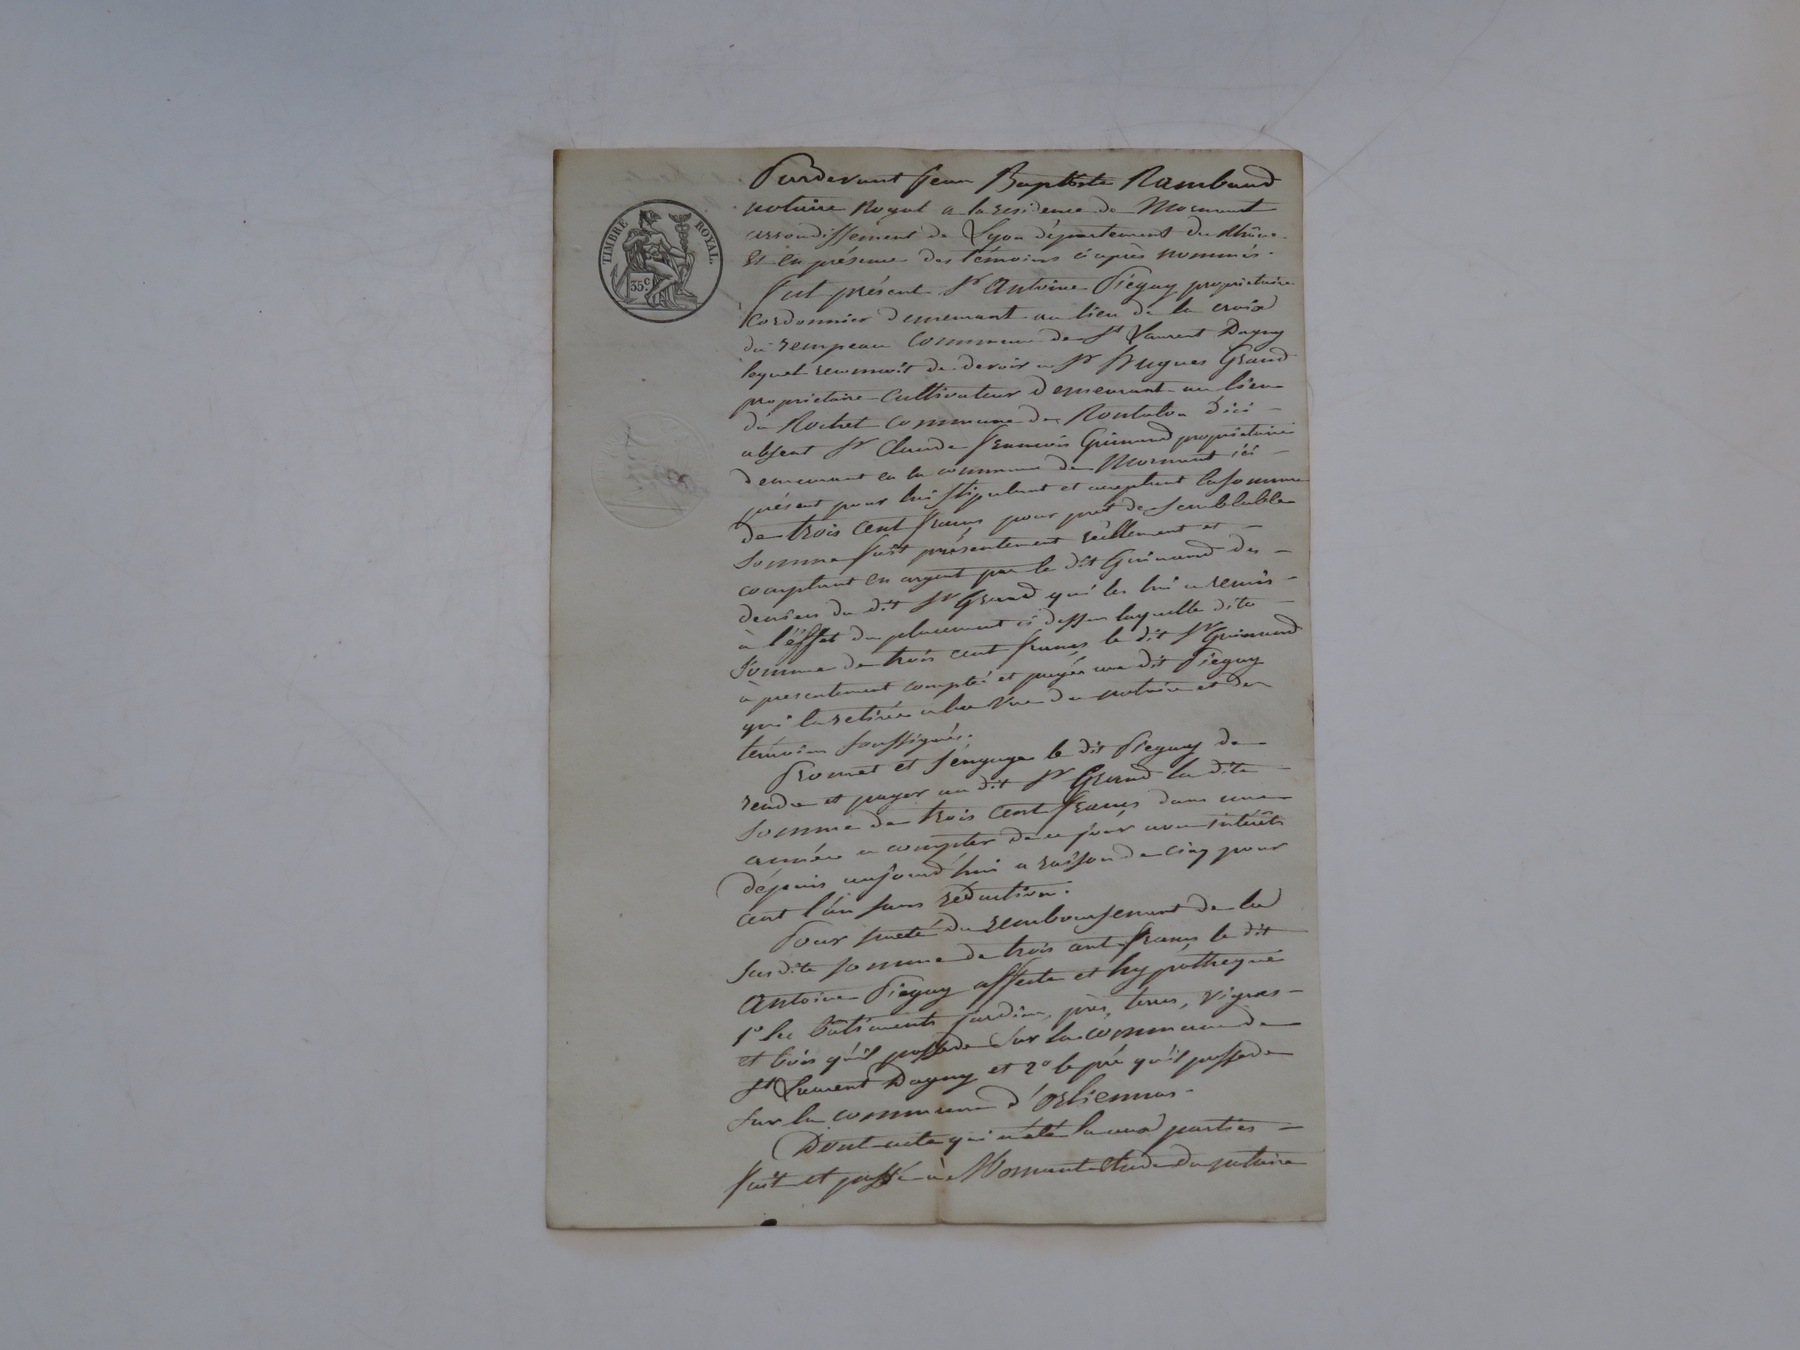 TIMBRE ROYAL.
35 c.
Pardevant Jean Baptiste Rambaud
notaire Royal a la residence de Mornant
arrondissement de Lyon département du Rhône
Et en présence des témoins ci après nommés.
fut présent Sr Antoine Piegay propriétaire
Cordonnier demeurant au lieu de la croix
du rempeau Commune de St Laurent Dagny
lequel reconnoit de devoir a Sr Hugues Grand
propriétaire Cultivateur demeurant au lieu
du Rochet Commune de Rontalon d'ici
absent Sr Claude francois Guinand propriétaire
demeurant en la commune de Mornant ici
présent pour lui stipulant et acceptant la somme
de trois Cent francs pour pret de Semblable
Somme fait présentement réellement et
comptant en argent par le dit Guinand des
deniers du dit Sr Grand qui les lui a remis
à l'éffet du placement ci dessus laquelle dite
Somme de trois cent francs le dit Sr Guinand
à presentement compté et payée au dit Piegay
qui la retirée a la Vue du notaire et des
témoins soussignés.
Promet et s'engage le dit Piegay de
rendre et payer au dit Sr Grand la dite
Somme de trois Cent francs dans une
année a compter de ce jour avec intérêts
dépuis aujourd'hui a raison de cinq pour
cent l'an sans réduction.
Pour sureté du remboursement de la
susdite somme de trois cent francs le dit
Antoine Piegay affecte et hypotheque
1o les Batiments jardin, près, terres, vignes
et bois qu'il possede sur la commune de
St Laurent Dagny et 2o le pré qu'il possede
sur la commune d'Orliennas.
Dont acte qui a été lu aux parties
fait et passé à Mornant étude du notaire